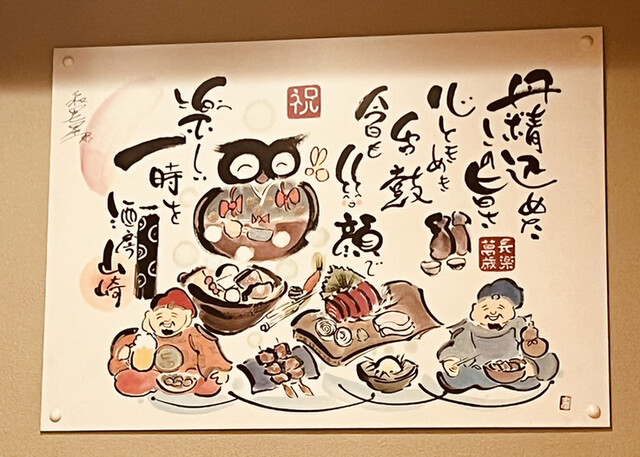 丹精込めた
この旨さ
長楽
萬歳
心ときめき
舌鼓
今日も
笑顔で
祝
楽しい
一時を
酒房
山崎